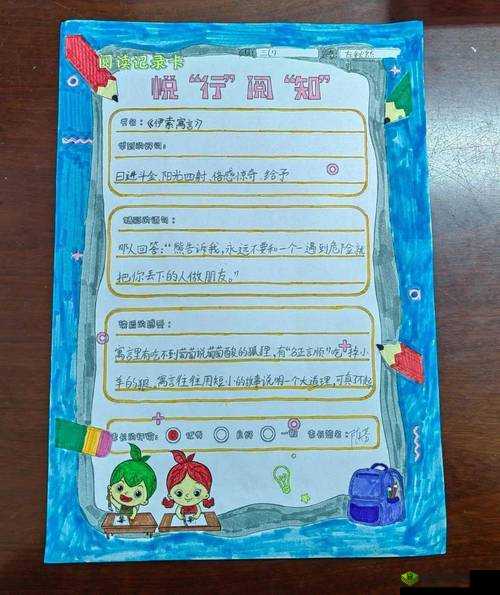 阅读记录卡
悦“行”阅“知”
书名：《伊索寓言》
日进斗金、阳光四射、倍感惊奇、给予
那人回答：“熊告诉我，永远不要和一个一遇到危险就
把你丢下的人做朋友。”
读后的感受：
寓言里有吃不到葡萄说葡萄酸的狐狸，有“名正言顺”吃掉小
羊的狼，寓言往往用短小的故事说明一个大道理，可真不
家长的评价： 优秀 良好 一般 家长签名：